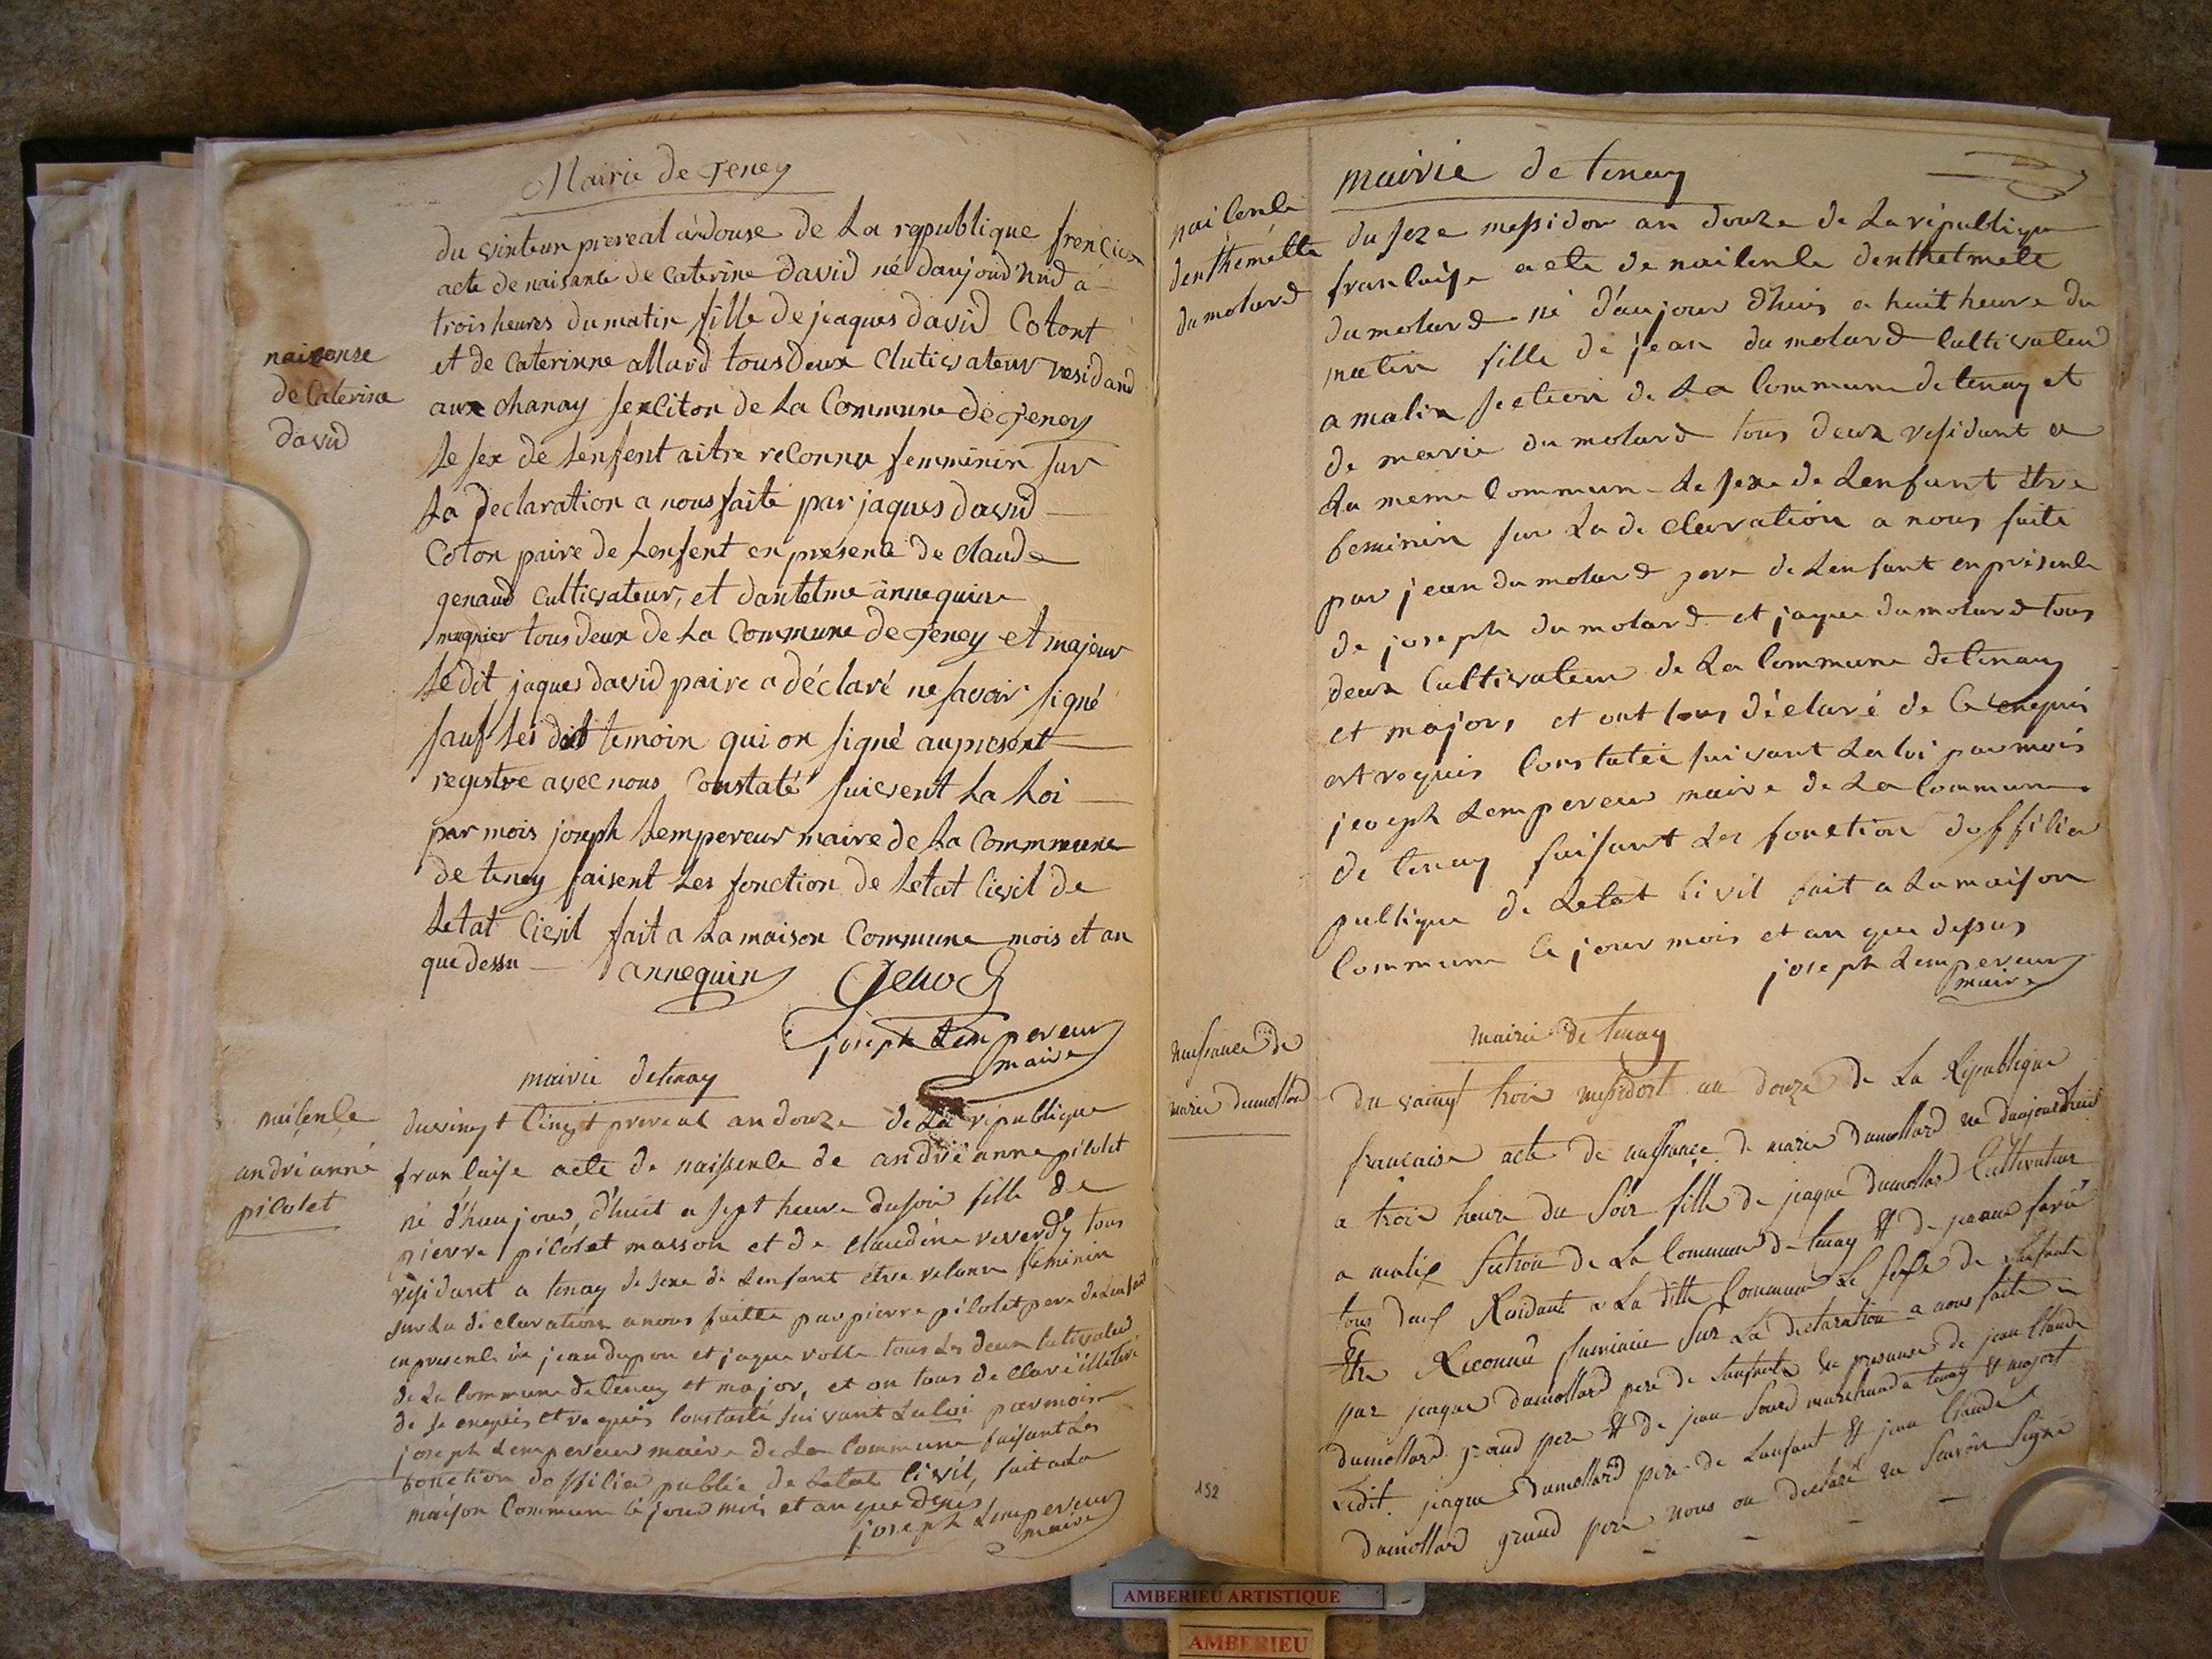 Mairie de Teney
du vinteun prereal àdouse de La republique
acte de naisance de Caterine david né daujourd'huid a
trois heures du matin fille de jeaques david Cotont
et de Caterinne allard tous deux Clutivateur residand
aux chanay sexciton de La Commune de Teney
naisense
de Caterine
david
Le sex de Lenfent aitre reconnu femminin sur
La declaration a nous faite par jaques david
Coton paire de Lenfent en presence de claude
genaud cultivateur, et dantelme annequin
tous deux de La Commune de Teney et majeur
Le dit jaques david paire a déclaré ne savoir signé
sauf Les dit temoin qui on signé au present
registre avec nous Constaté suivent La Loi
par mois joseph Lempereur maire de La Commmune
de teney faisent Les fonction de Letat Civil de
Letat Civil fait a La maison Commune mois et an
que dessu annequin
joseph Lempereur
maire
mairie detenay
naisence
andrianne
pilolet
du vingt Cinqt prereal an douze de La republique
francaise acte de naissence de andrieanne pilolet
né d'heujour d'huit a sept heure du soir fille de
pierre pilolet masson et de claudine reverdy tous
residant a tenay Le sexe de Lenfant etre reconu feminin
sur La declaration a nous faitte par pierre pilolet pere de Lenfant
en presence de jean dupon et jaque rolle tous Les deux
de La Commune de tenay et major, et on tous declaré
de se enquis et requis Constasté suivant La Loi par mois
joseph Lempereur maire de La Commune faisant Les
fonction dofficier public de Letat Civil, fait a La
maison Commune Le jour mois et an que
joseph Lempereur
maire
mairie de tenay
naicence
denthemette
dumolard
du seze messidor an douze de La republique
francaise acte de naicence denthelmette
dumolard né d'aujour d'huis a huit heure du
matin fille de jean dumolard Cultivateu
a malix section de La Commune de tenay et
de marie dumolard tous deux residant a
La meme Commune Le sexe de Lenfant etre
feminin sur La declaration a nous faite
par jean dumolard pere de Lenfant en presence
de joseph dumolard et jaque dumolard tous
deux Cultivateur de La Commune de tenay
et major, et ont tous déclaré de Ce enquis
et requis Constatée suivant La Loi par mois
joseph Lempereur maire de La Commune
de tenay faisant Les fonction dofficier
publique de Letat Civil fait a La maison
Commune Le jour mois et an que dessus
joseph Lempereur
maire
mairie de tenay
naissance de
marie dumollard
du vaingt trois messidort an douze de La Republique
francaise acte de naissance de marie dumollard né daujourdhuis
a trois heure du soir fille de jeaque dumollard Cultivateur
a malix section de La Commune de tenay et de jeanne
tous deux Residant a La ditte Commune Le sexe de Lenfant
Etre Reconnû faminin sur La declaration a nous faite
par jeaque dumollard pere de Lenfant en presance de jean Claude
dumollard grand pere et de jean marchand a tenay et majort
Ledit jeaque dumollard pere de Lanfant et jean Claude
dumollard grand pere nous on declaré ne Scavoir Signé
152
AMBERIEU ARTISTIQUE
AMBERIEU